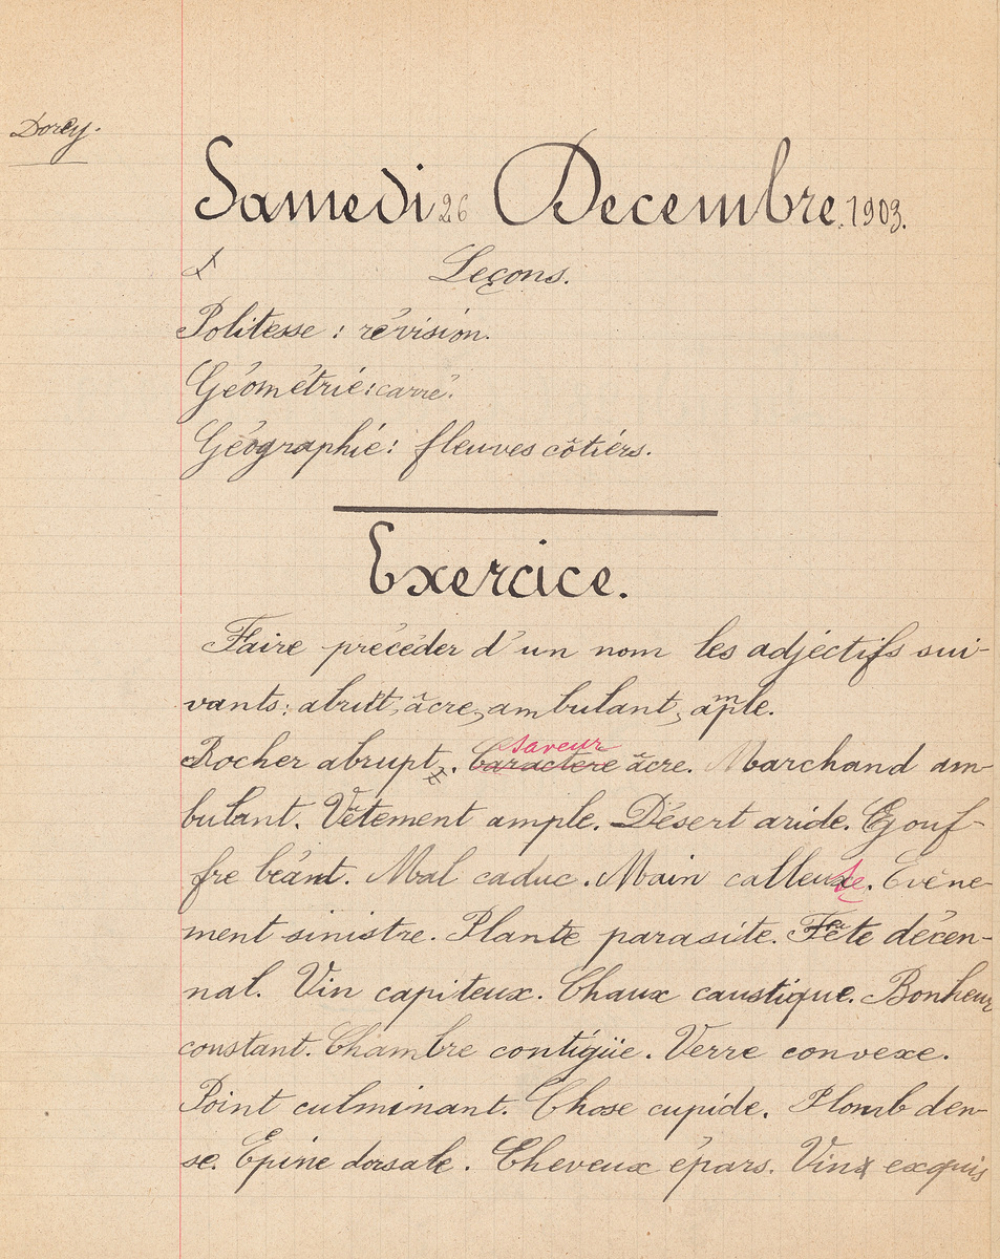 Dorey.
Samedi 26 Decembre 1903.
Leçons.
Politesse : révision.
Géométrie : carré.
Géographie : fleuves côtiérs.
Exercice.
Faire précéder d'un nom les adjéctifs sui-
vants : abrût, âcre, ambulant, ample.
saveur
Rocher abrupt. Caractere âcre. Marchand am-
bulant. Vêtement ample. Désert aride. Gouf-
fre béant. Mal caduc. Main calleuse. Evéne-
ment sinistre. Plante parasite. Fête décen-
nal. Vin capiteux. Chaux caustique. Bonheur
constant. Chambre contigüe. Verre convexe.
Point culminant. Chose cupide. Plomb den-
se. Epine dorsale. Cheveux épars. Vin exquis